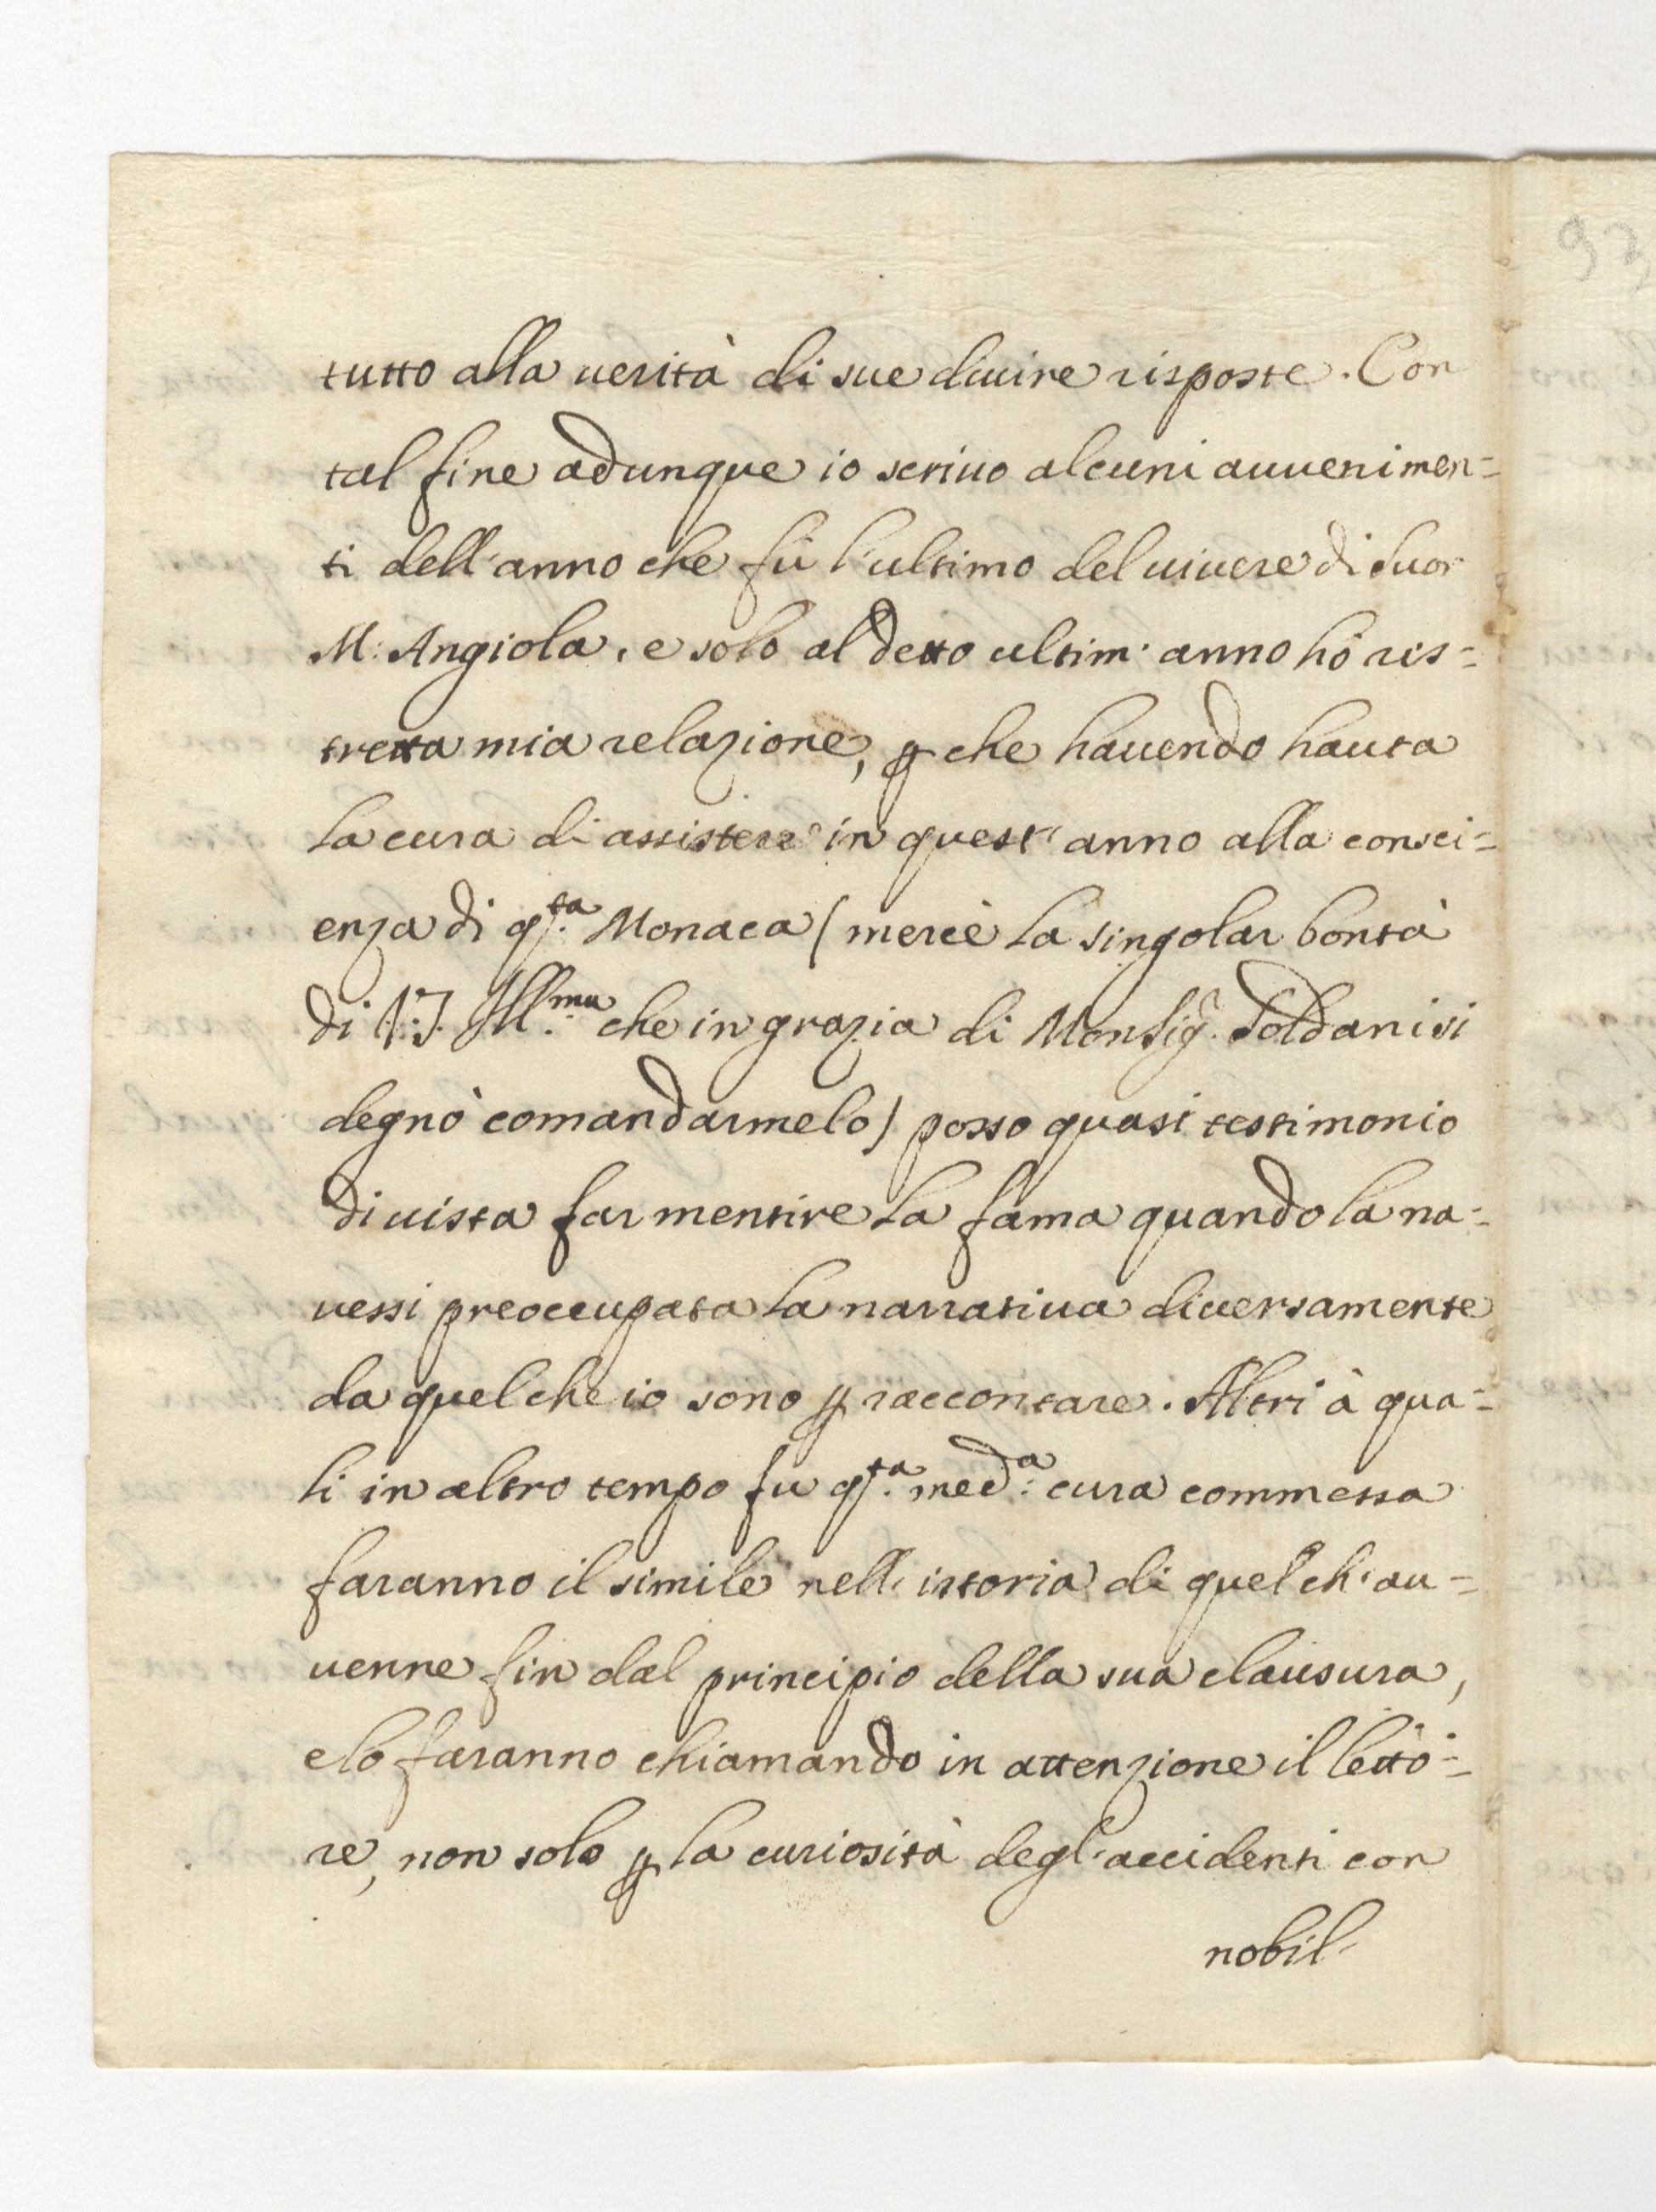 tutto alla uerità di sue diuine risposte. Con
tal fine adunque io scriuo alcuni auuenimen=
ti dell'anno che fù l'ultimo del uiuere di Suor
M: Angiola, e solo al detto ultim' anno hò ris=
tretta mia relazione, ꝑ che hauendo hauta
la cura di assistere in quest' anno alla consci=
enza di q.ta Monaca (mercè la singolar bontà
di V.S. Ill.ma che in grazia di Monsig.r Soldani si
degnò comandarmelo) posso quasi testimonio
di uista far mentire la fama quando la na=
uessi preoccupata la narratiua diuersamente
da quel che io sono ꝑ raccontare. Altri à qua=
li in altro tempo fu q.ta med.a cura commessa
faranno il simile nell' istoria di quel ch' au=
uenne fin dal principio della sua clausura,
e lo faranno chiamando in attenzione il letto=
re, non solo ꝑ la curiosità degl' accidenti con
nobil'
92